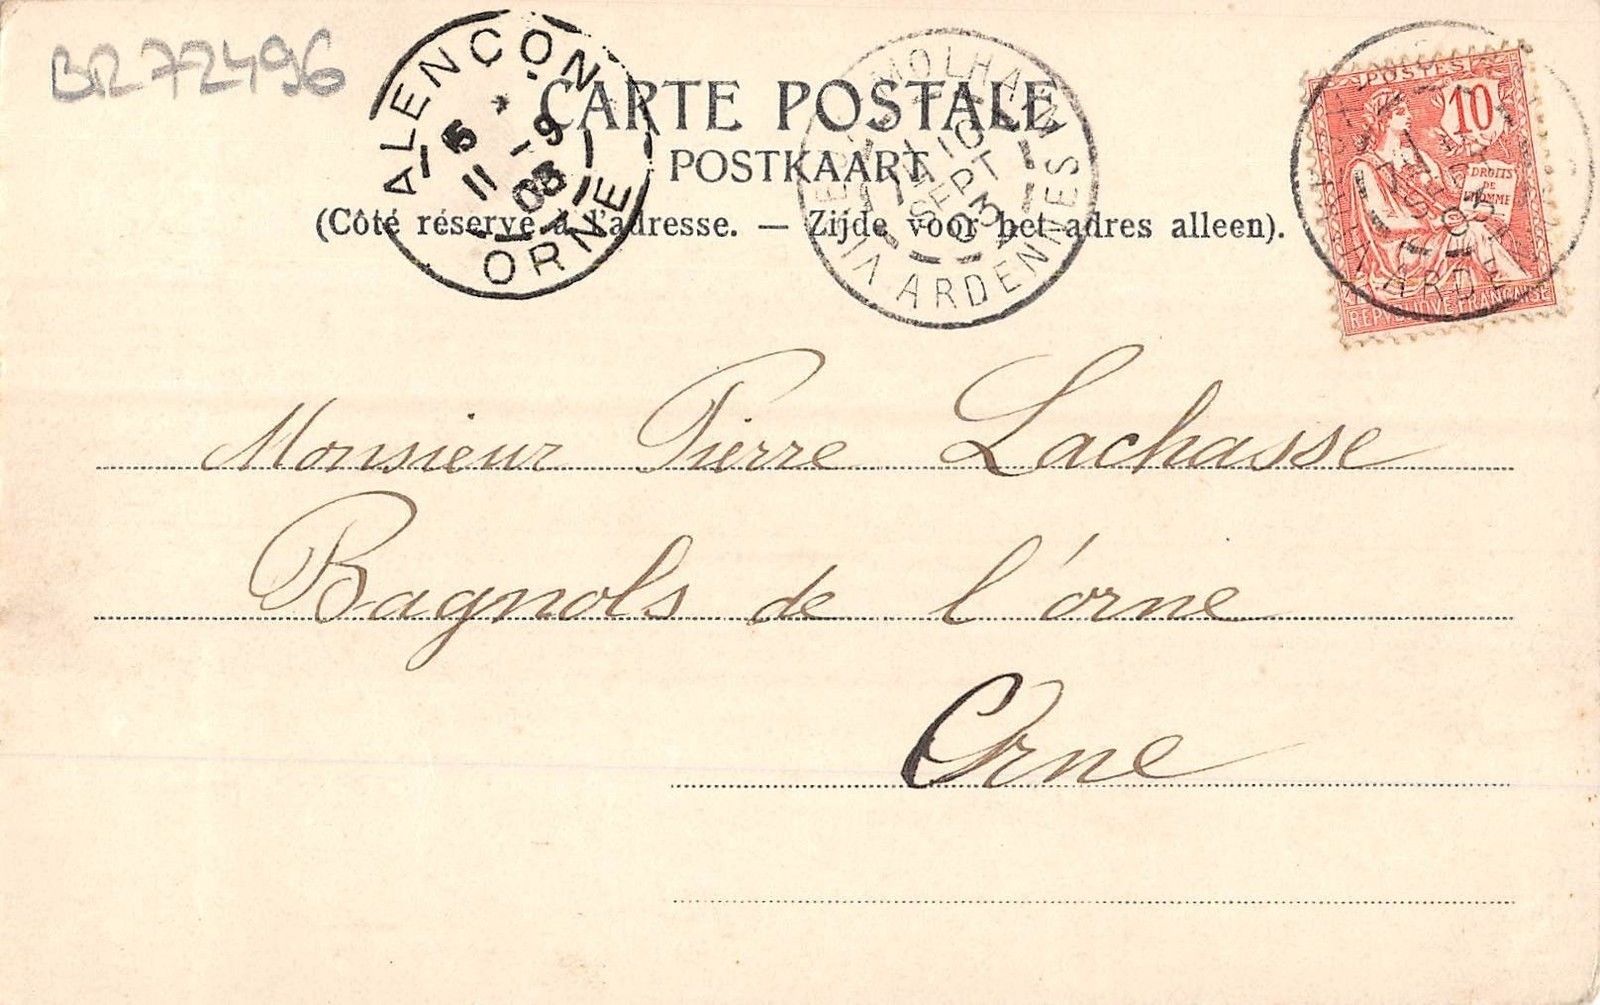 BR72496
ALENÇON
5
11 -9
03
ORNE
MOLHAIN
10
SEPT
03
ARDENNES
POSTES
10
DROITS
DE
L'HOMME
REPUBLIQUE FRANÇAISE
CARTE POSTALE
POSTKAART
(Côté réservé à l'adresse. — Zijde voor het adres alleen).
Monsieur Pierre Lachasse
Bagnols de l'orne
Orne